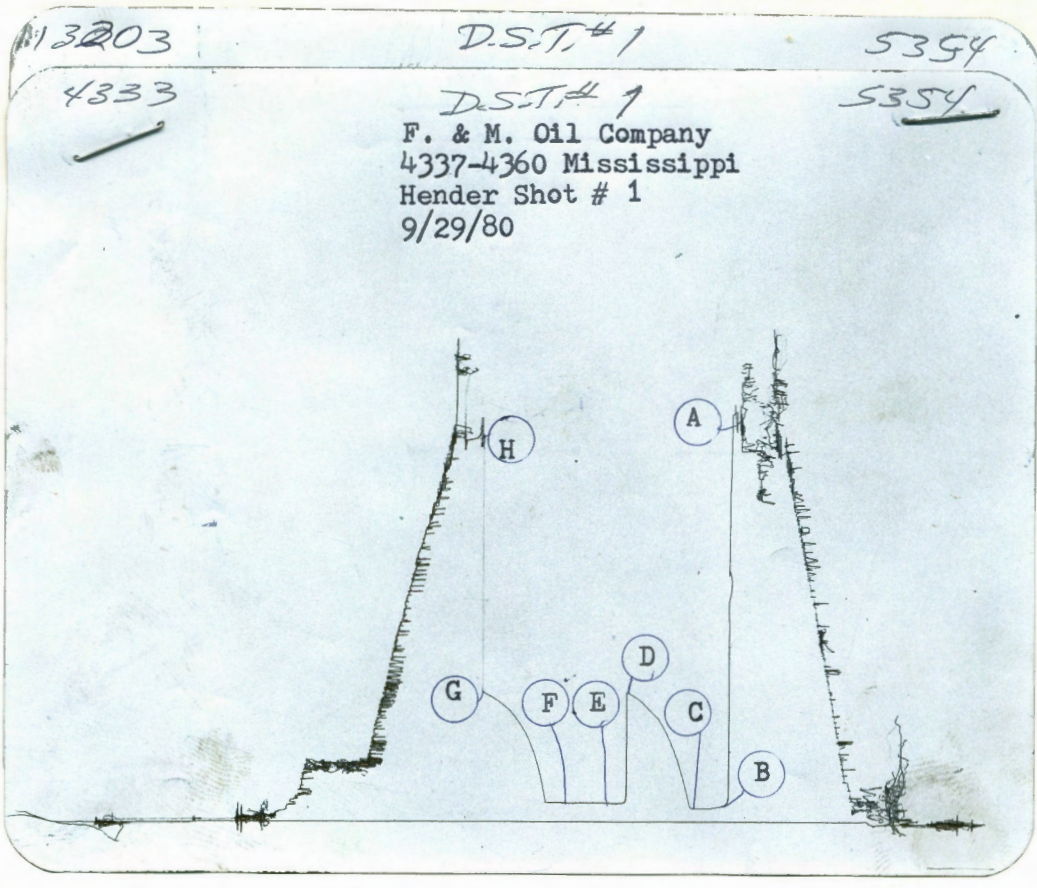 13203 D.S.T. # 1 5354
4333 D.S.T. # 1 5354
F. & M. Oil Company
4337-4360 Mississippi
Hender Shot # 1
9/29/80
H
A
D
G
F
E
C
B